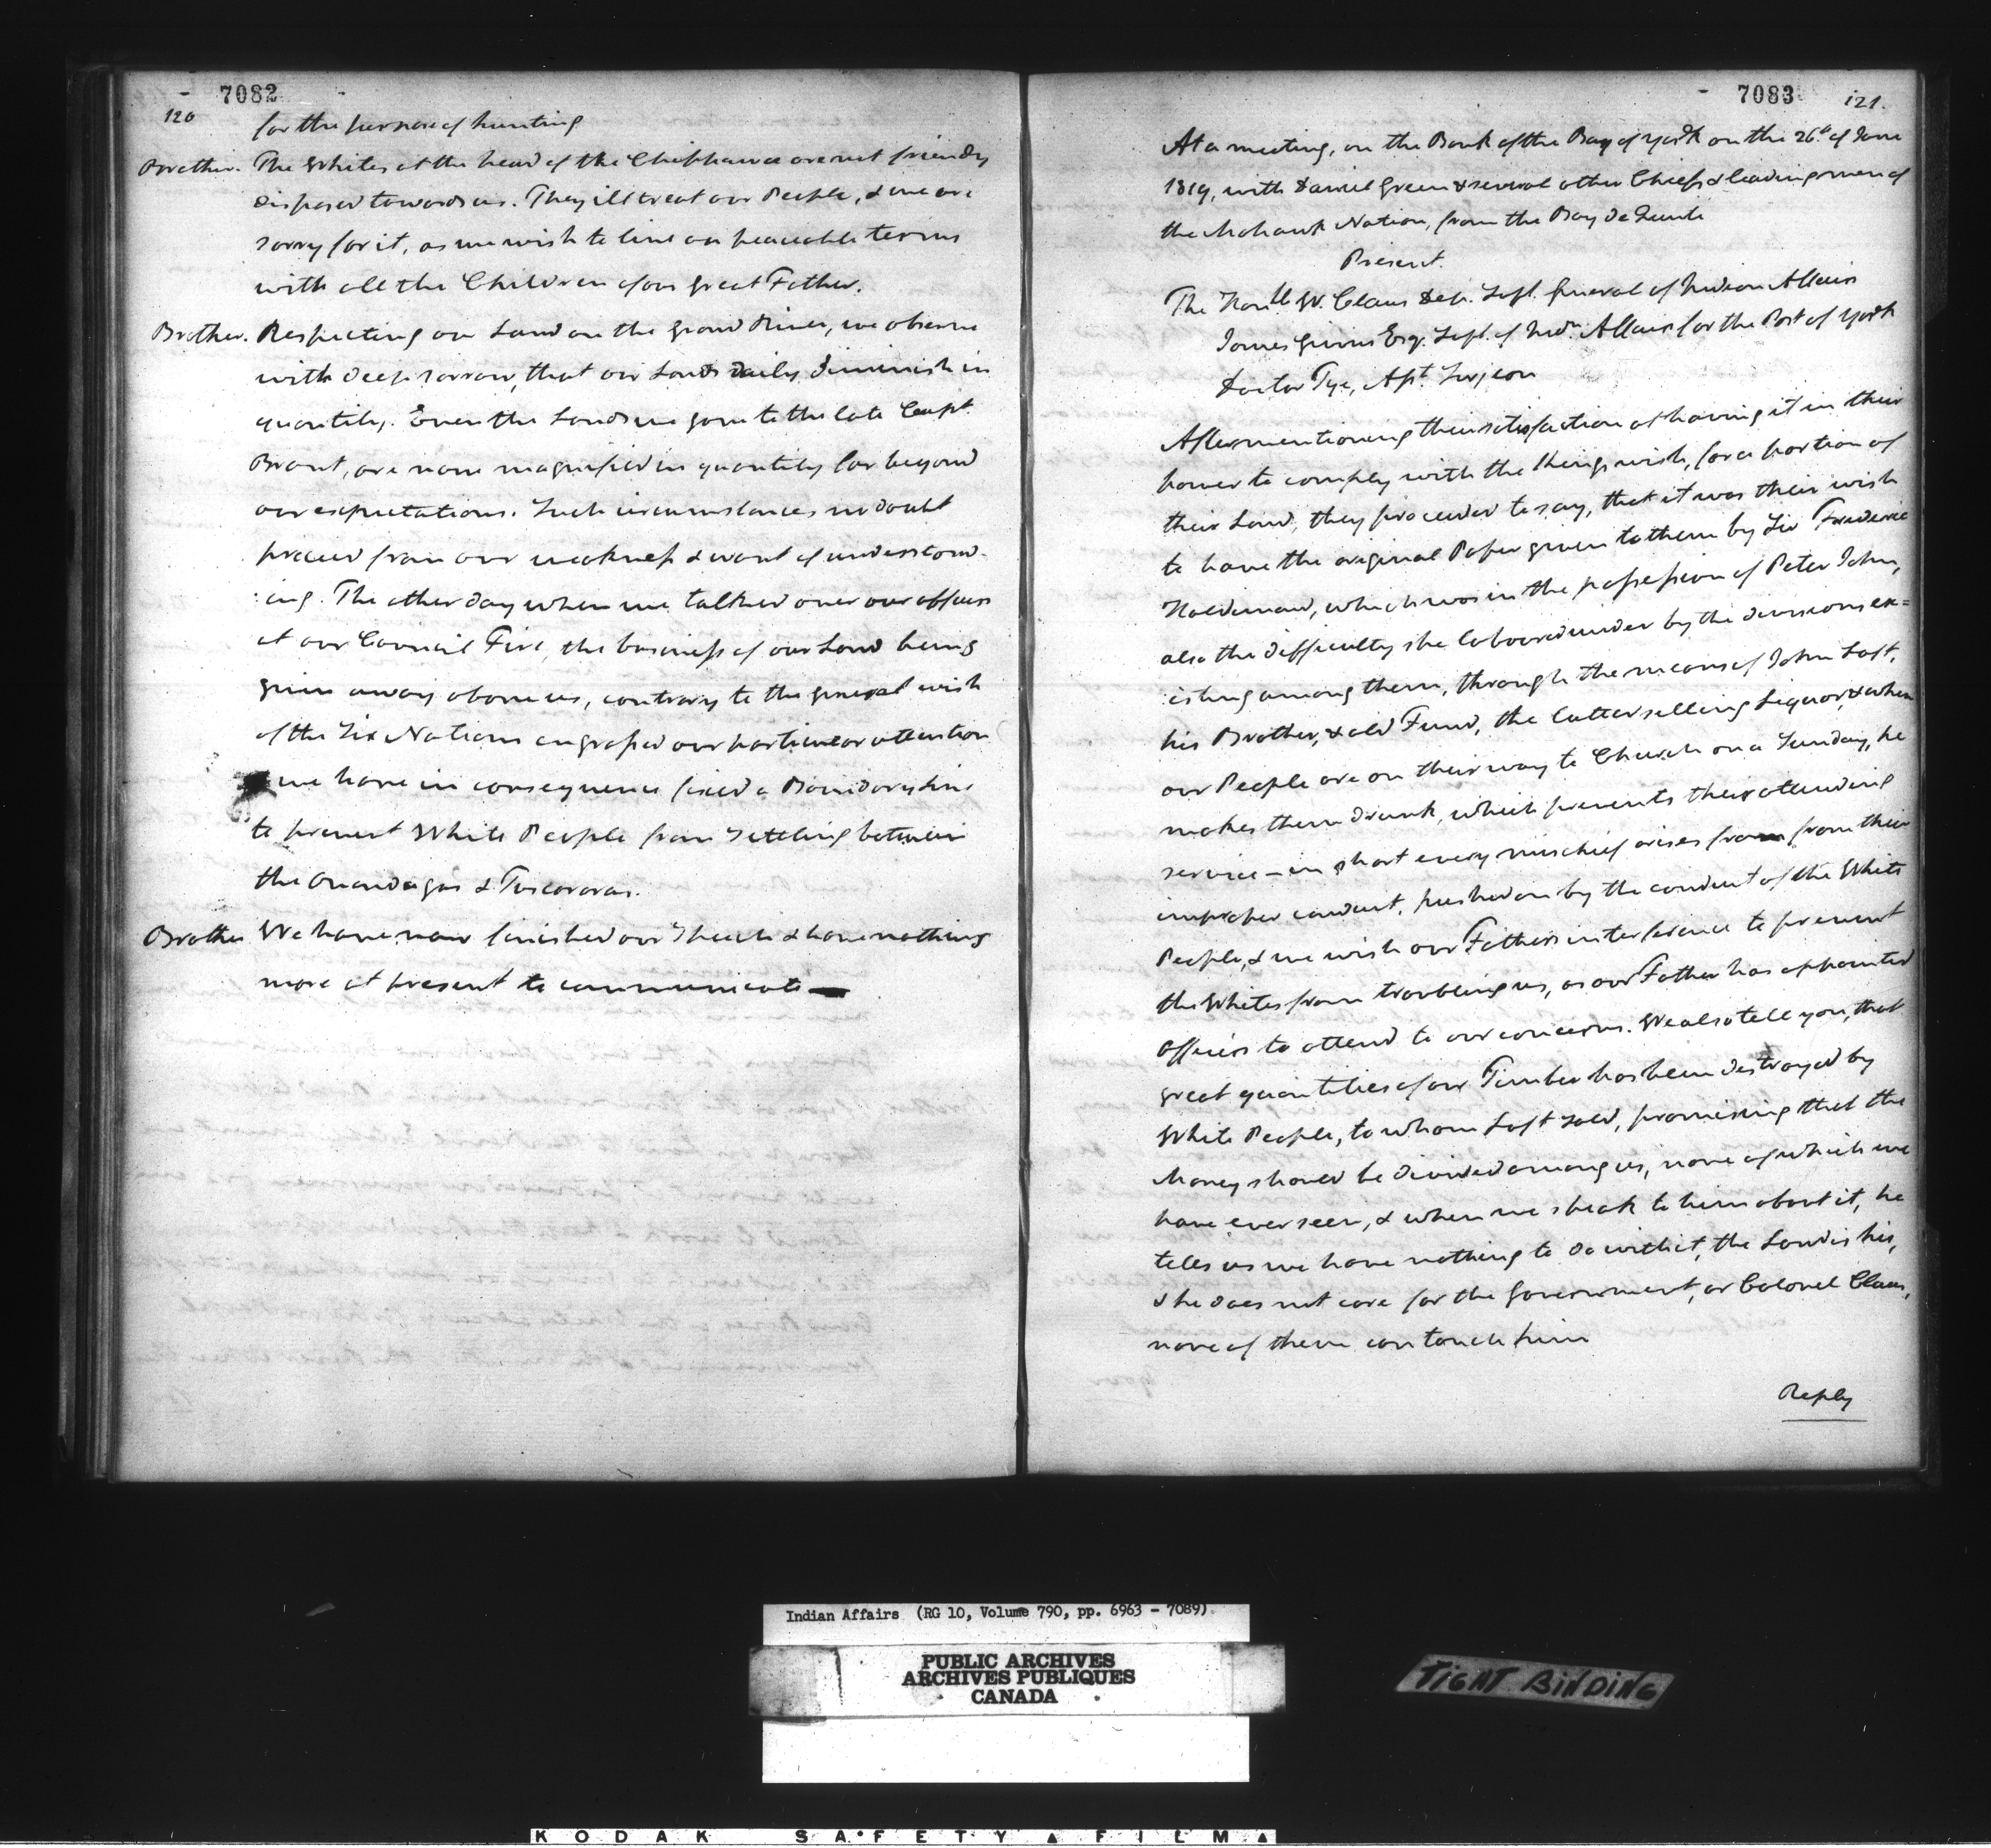 7082
120
for the purpose of hunting
Brother. The Whites at the head of the Chippawa are not friendly
disposed towards us. They ill treat our People, & we are
sorry for it, as we wish to live on peaceable terms
with all the Children of our great Father.
Brother. Respecting our Land on the Grand River, we observe
with deep sorrow, that our Lands daily diminish in
quantity. Even the Lands we gave to the late Capt.
Brant, are now magnified in quantity far beyond
our expectations. Such circumstances no doubt
proceed from our weakness & want of understand-
:ing. The other day when we talked over our affairs
at our Council Fire, the business of our Land being
given away above us, contrary to the general wish
of the Six Nations engrossed our particular attention
we have in consequence fixed a Boundary Line
to prevent White People from Settling between
the Onondagas & Tuscaroras.
Brother We have now finished our Speech & have nothing
more at present to communicate
7083
121.
At a meeting, on the Bank of the Bay of York on the 26th of June
1819, with Daniel Green & several other Chiefs & leading men of
the Mohawk Nation, from the Bay de Quinte
Present.
The Honble W. Claus Dep. Supt. General of Indian Affairs
James Givins Esqr. Supt. of Indn. Affairs for the Post of York
Doctor Tye, Asst. Surgeon
After mentioning their satisfaction at having it in their
power to comply with the Kings wish, for a portion of
their Land, they proceeded to say, that it was their wish
to have the original Paper given to them by Sir Frederic
Haldimand, which was in the possession of Peter John,
also the difficulty she laboured under by the divisions ex=
:isting among them, through the means of John Loft,
his Brother, & old Funn, the latter selling Liquor, & when
our People are on their way to Church on a Sunday, he
makes them drunk, which prevents their attending
service – in short every mischief arises from from their
improper conduct, pushed on by the conduct of the White
People, & we wish our Fathers interference to prevent
the Whites from troubling us, as our Father has appointed
Officers to attend to our concerns. We also tell you, that
great quantities of our Timber has been destroyed by
White People, to whom Loft Sold, promising that the
Money should be divided among us, none of which we
have ever seen, & when we speak to him about it, he
tells us we have nothing to do with it, the Land is his,
& he does not care for the Government, or Colonel Claus,
none of them can touch him
Reply
Indian Affairs (RG 10, Volume 790, pp. 6963 - 7089)
PUBLIC ARCHIVES
ARCHIVES PUBLIQUES
CANADA
TIGHT BINDING
KODAK SAFETY FILM